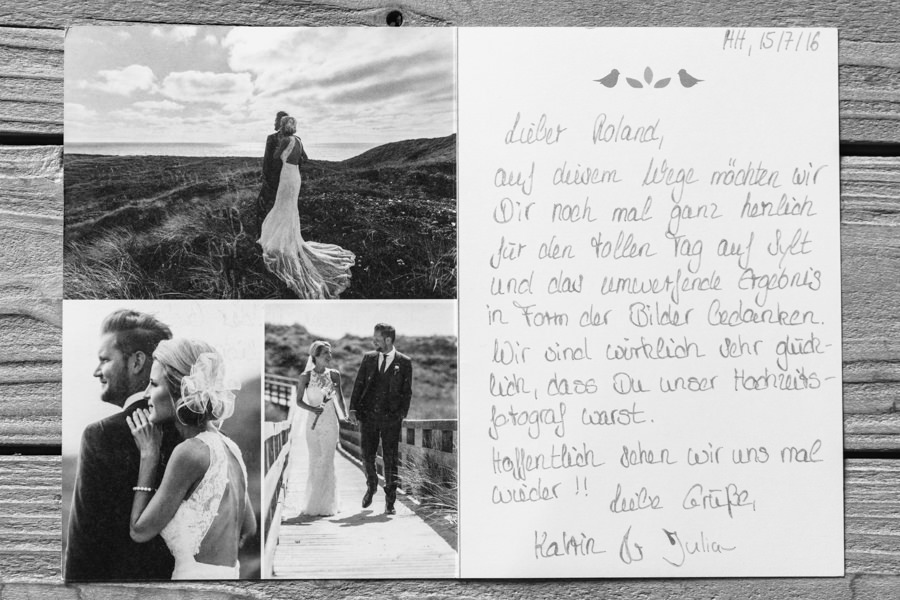 HH, 15/7/16
Lieber Roland,
auf diesem Wege möchten wir
Dir noch mal ganz herzlich
für den tollen Tag auf Sylt
und das umwerfende Ergebnis
in Form der Bilder Bedanken.
Wir sind wirklich sehr glück-
lich, dass Du unser Hochzeits-
fotograf warst.
Hoffentlich sehen wir uns mal
wieder !!
Liebe Grüße,
Katrin & Julian